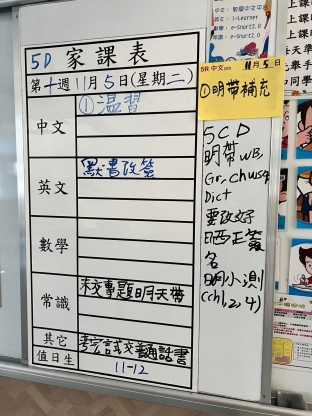 5D 家課表
第十週11月5日(星期二)
中文
①温習
英文
默書改簽
數學
常識
未交專題明天帶
其它
考完試交通話書
值日生
11-12
5R 中文
11月5日
①明帶補充
5CD
明帶WB,
Gr, ch
Dict
要改好
晒正簽
名
明小測
(ch1,2,4)
中文:
英文: i-Learner
e-Smart2.0
e-Smart2.0